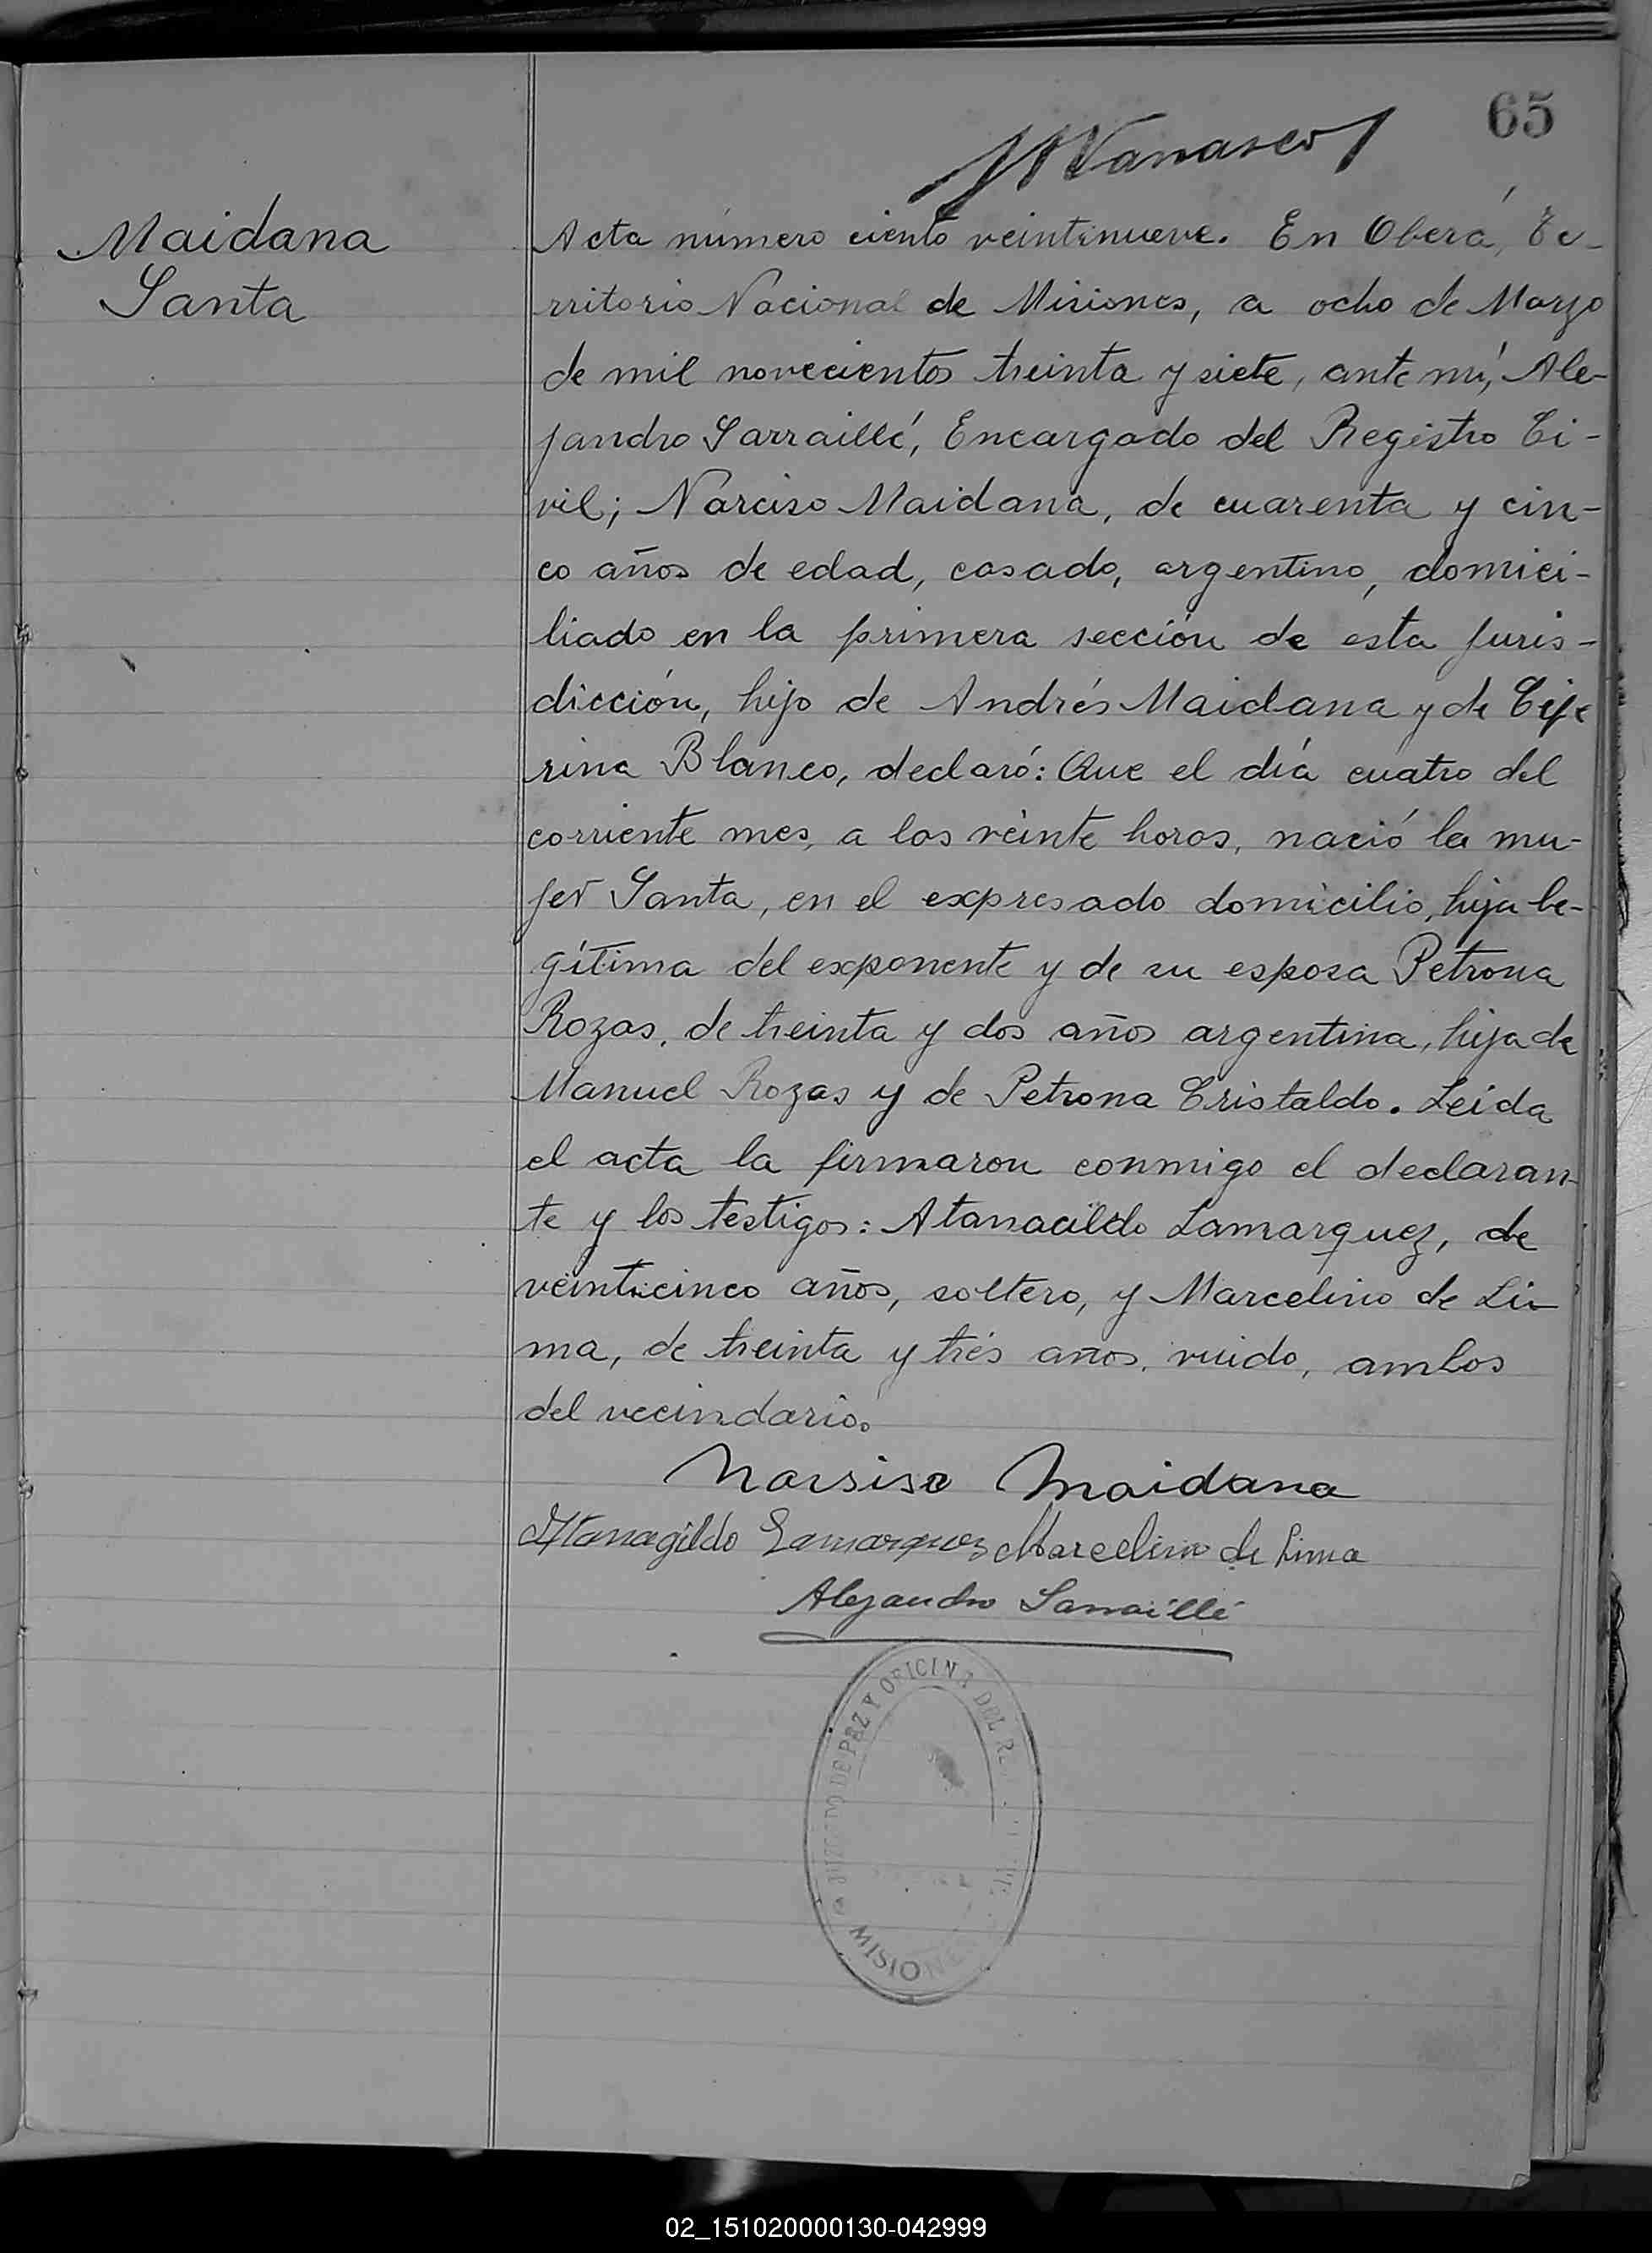 65
Maidana
Santa
Acta número ciento veintinueve. En Oberá, Te-
rritorio Nacional de Misiones, a ocho de Marzo
de mil novecientos treinta y siete, ante mí, Ale-
jandro Sarraillé, Encargado del Registro Ci-
vil; Narciso Maidana, de cuarenta y cin-
co años de edad, casado, argentino, domici-
liado en la primera sección de esta juris-
dicción, hijo de Andrés Maidana y de Cife
rina Blanco, declaró: Que el día cuatro del
corriente mes, a las veinte horas, nació la mu-
jer Santa, en el expresado domicilio, hija le-
gítima del exponente y de su esposa Petrona
Rozas, de treinta y dos años argentina, hija de
Manuel Rozas y de Petrona Cristaldo. Leida
el acta la firmaron conmigo el declaran-
te y los testigos: Atanacildo Lamarquez, de
veinticinco años, soltero, y Marcelino de Li-
ma, de treinta y trés años, viudo, ambos
del vecindario.
Narsiso Maidana
Atanagildo Lamarquez Marcelino de Lima
Alejandro Sarraillé
JUZGADO DE PAZ Y OFICINA DEL R
MISIONES
02_151020000130-042999